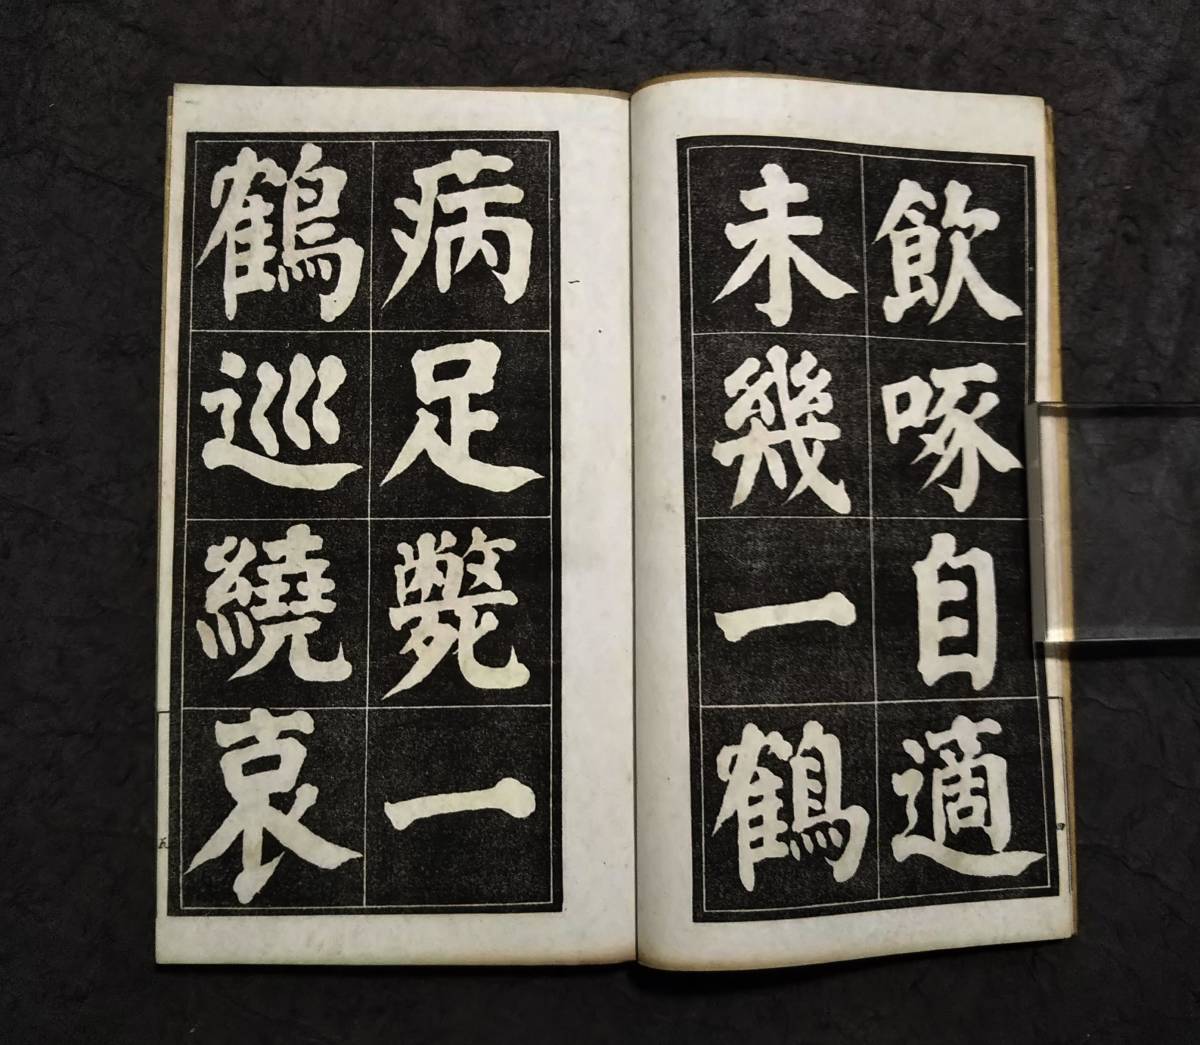 飲啄自適
未幾一鶴
病足斃一
鶴巡繞哀
四
五